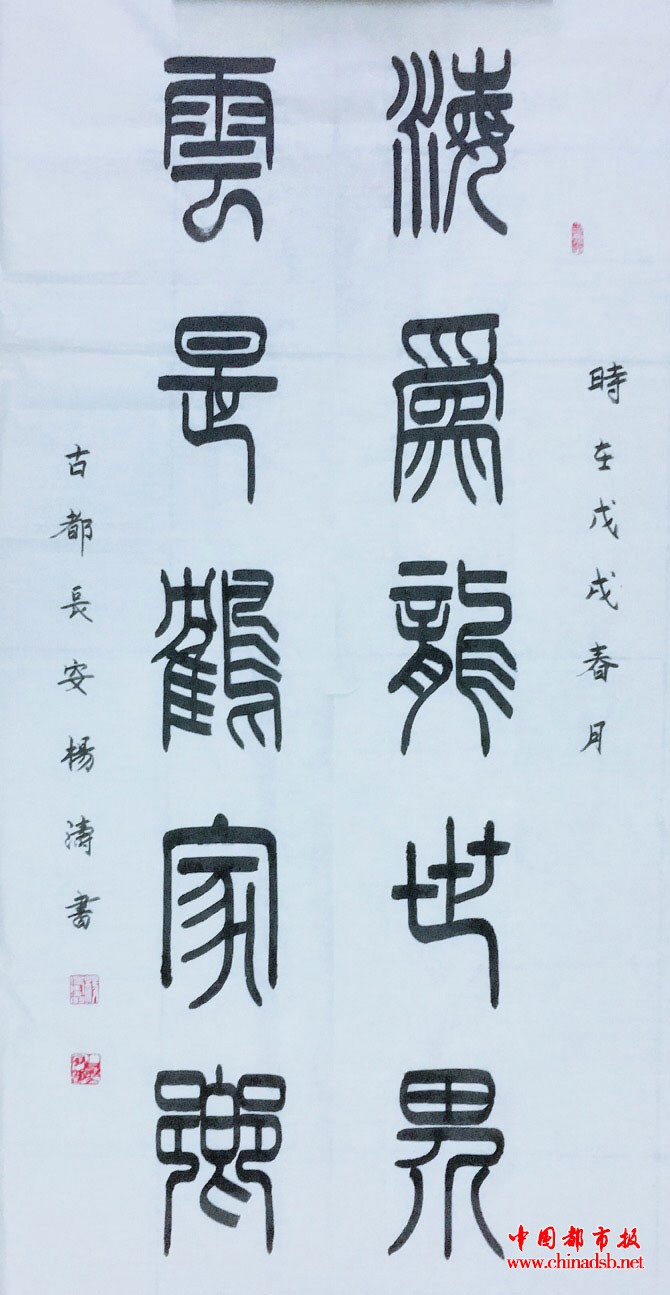 時在戊戌春月
海為龍世界
雲是鶴家鄉
古都長安楊濤書
中国都市报
www.chinadsb.net